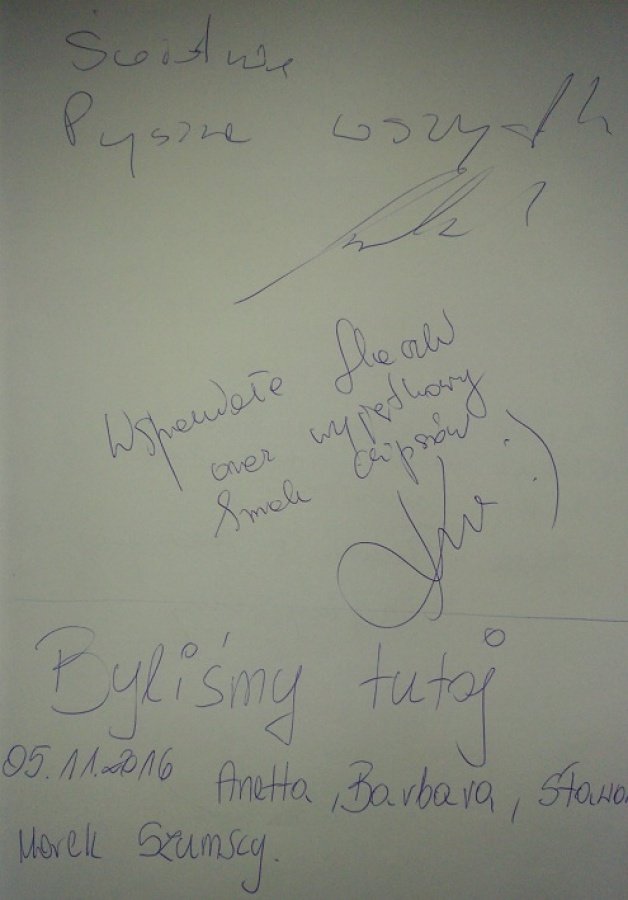 Świetne
Pyszne wszystk
Wspaniałe
oraz wyjątkowy
Smak chipsów
:)
Byliśmy tutaj
05.11.2016 Anetta, Barbara, Sławo
Marek Szumscy.